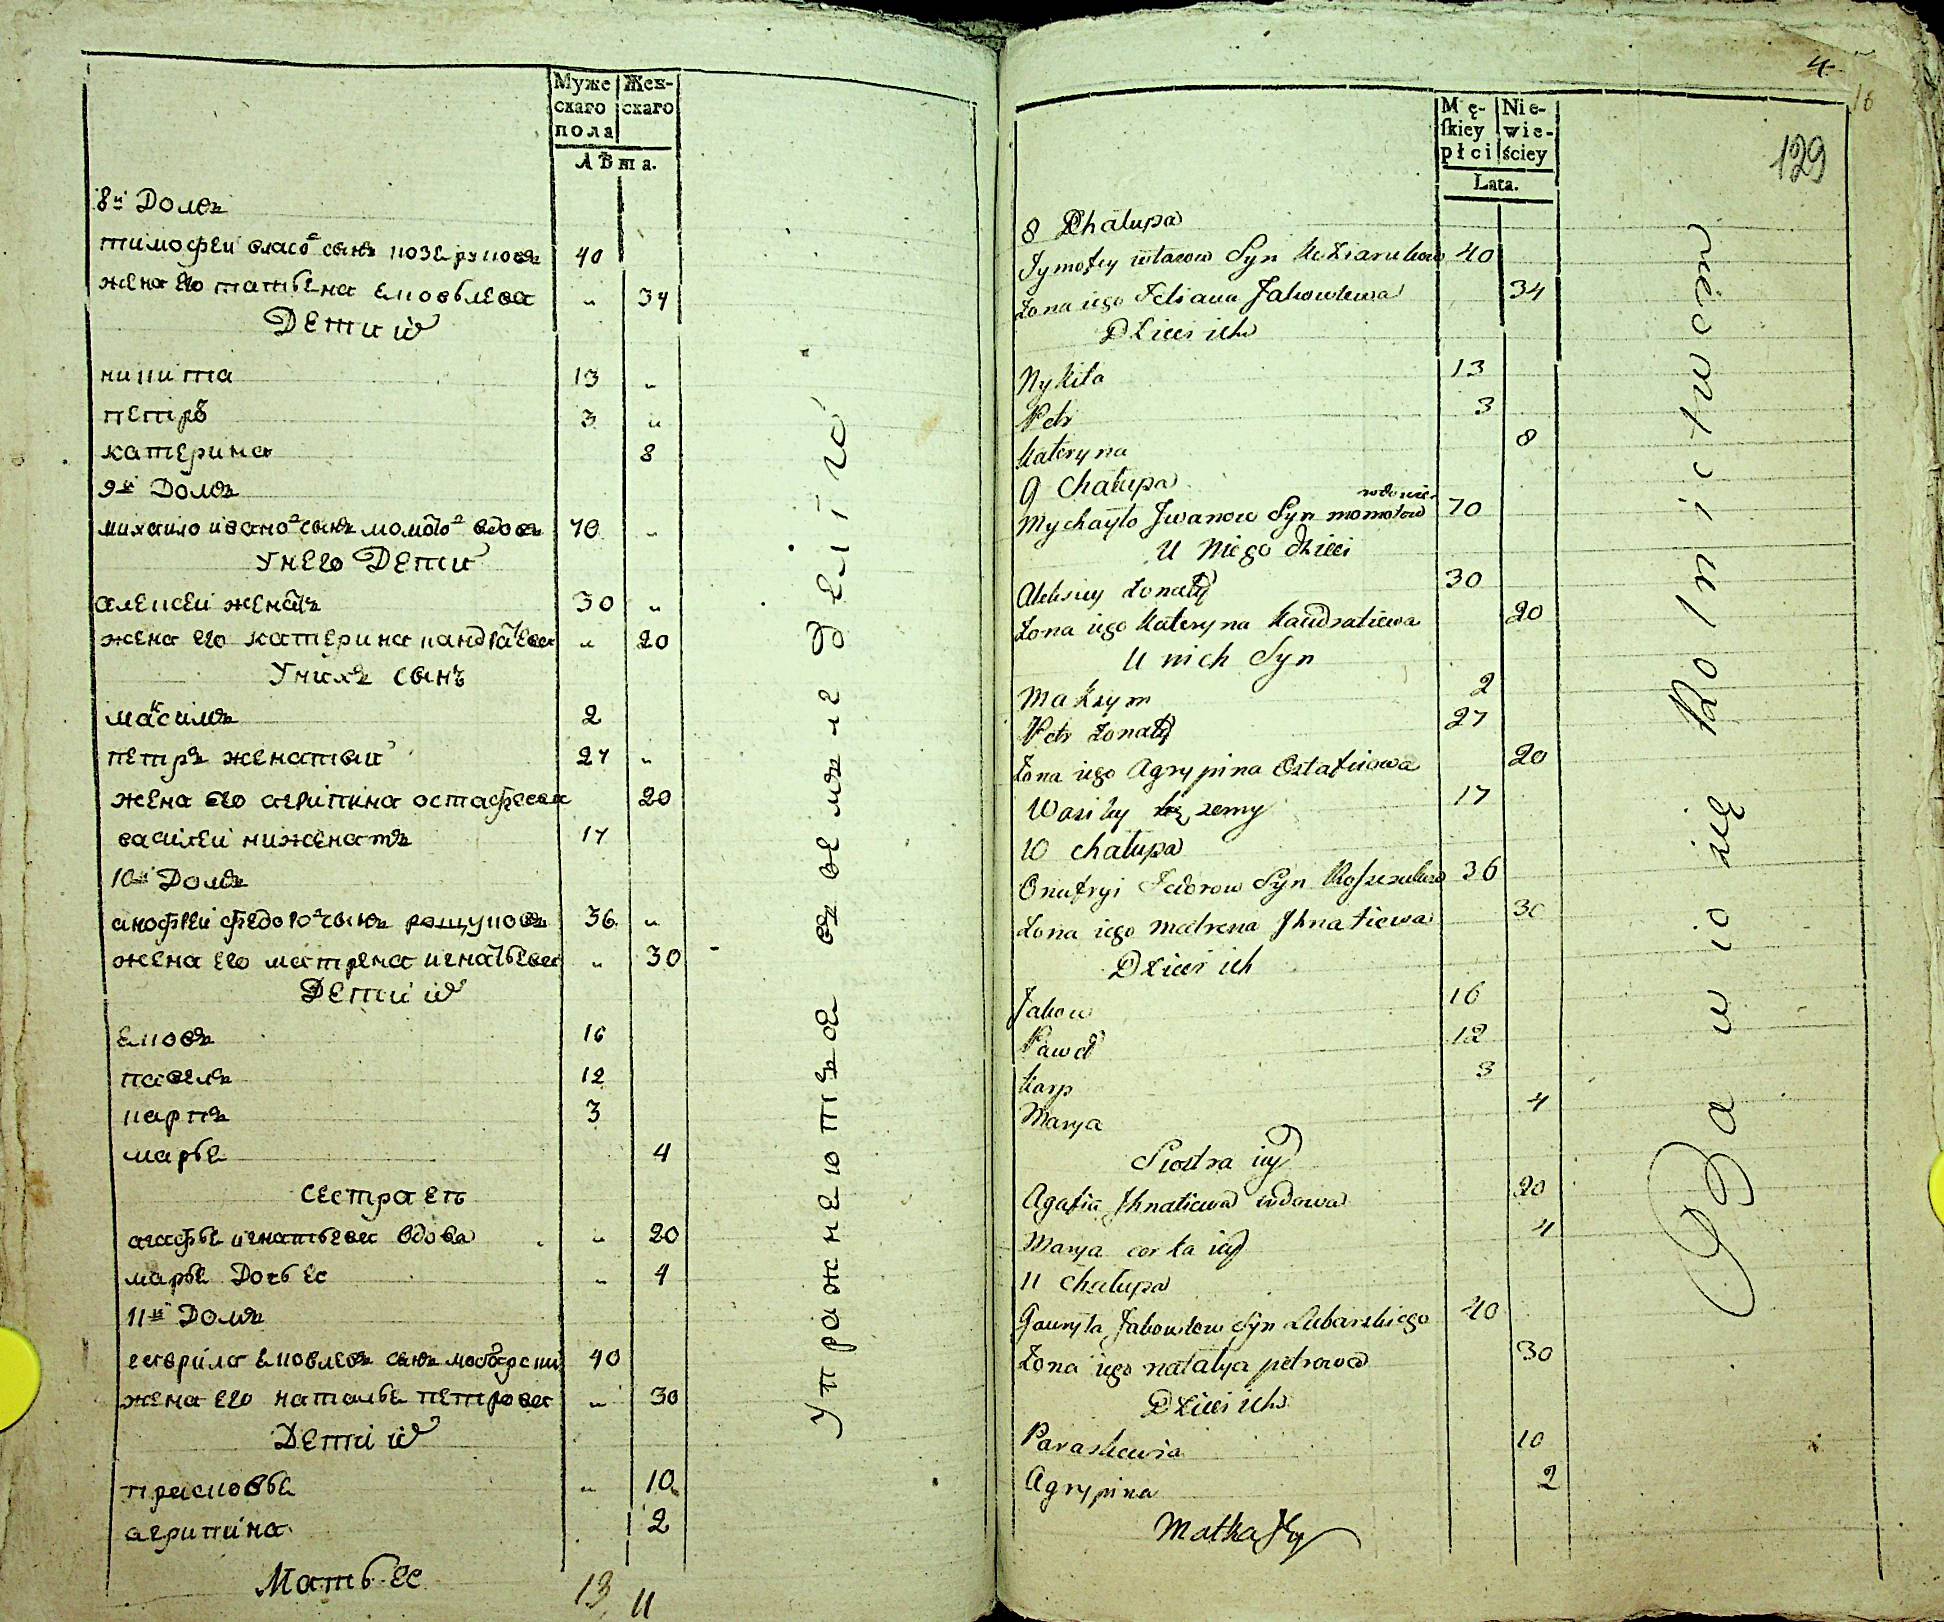 Муже Жен-
скаго скаго
пола
Лѣта.
8й Домъ
тимофеи власо сынъ козеруковъ 40
жена его татьена еиовлева „ 34
Дети ихъ
никита 13 „
петръ 3 „
катерина 8
9й Домъ
михаило ивано сынъ момото вдовъ 70 „
У него Дети
алексеи женатъ 30 „
жена его катерина кандратева „ 20
У нихъ сынъ
максимъ 2
петръ женатыи 27 „
жена его агрипина остафева 20
василеи ниженатъ 17
10й Домъ
анофреи федоро сынъ рощуковъ 36 „
жена его матрена игнатьева „ 30
Дети ихъ
еиовъ 16
павелъ 12
карпъ 3
марье 4
сестра еъ
агафье игнатьева вдова „ 20
марье Дочь ее „ 4
11й Домъ
гаврило еиовлевъ сынъ 40
жена его наталье петрова „ 30
Дети ихъ
прасковье „ 10
агрипина 2
Мать ее
13 11
Упражнеютъца въ земледеліїо
4
16
129
Mę- Nie-
ſkiey wie-
płci ściey
Lata.
8 Chałupa
Tymofey własow Syn Koziarukow 40
Żona iego Tetiana Jakowlewa 34
Dzieci ich
Nykita 13
Petr 3
Kateryna 8
9 Chałupa
wdowiec
Mychayło Jwanow Syn momotow 70
U Niego dzieci
Aleksiey żonaty 30
Żona iego Kateryna Kandratiewa 20
U nich Syn
Maksym 2
Petr żonaty 27
Żona iego Agrypina Ostafiowa 20
Wasiley 17
10 chałupa
Onufryi Fedorow Syn Roszczukow 36
Żona iego matrena Jhnatiewa 30
Dzieci ich
Jakow 16
Paweł 12
Karp 3
Marya 4
Siostra iey
Agafia Jhnatiewa wdowa 20
Marya corka iey 4
11 Chałupa
Gawryła Jakowlew Syn Lubarskiego 40
Żona iego natalya petrowa 30
Dzieci ich
Paraskewia 10
Agrypina 2
Matka Jey
Bawio się Rolnictwem